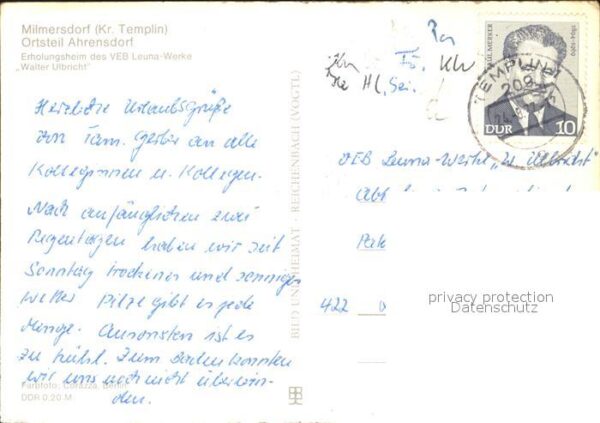 Milmersdorf (Kr. Templin)
Ortsteil Ahrensdorf
Erholungsheim des VEB Leuna-Werke
„Walter Ulbricht"
Herzliche Urlaubsgrüße
von Fam. Gerber an alle
Kolleginnen u. Kollegen.
Nach anfänglichen zwei
Regentagen haben wir seit
Sonntag trockenes und sonniges
Wetter. Pilze gibt es jede
Menge. Ansonsten ist es
zu kühl. Zum Baden konnten
wir uns noch nicht überwin-
den.
Farbfoto: Corazza, Berlin
DDR 0,20 M
BILD UND HEIMAT · REICHENBACH (VOGTL)
PAUL MERKER
TEMPLIN
209
DDR 10
VEB Leuna-Werke „W. Ulbricht"
Abt
422
privacy protection
Datenschutz